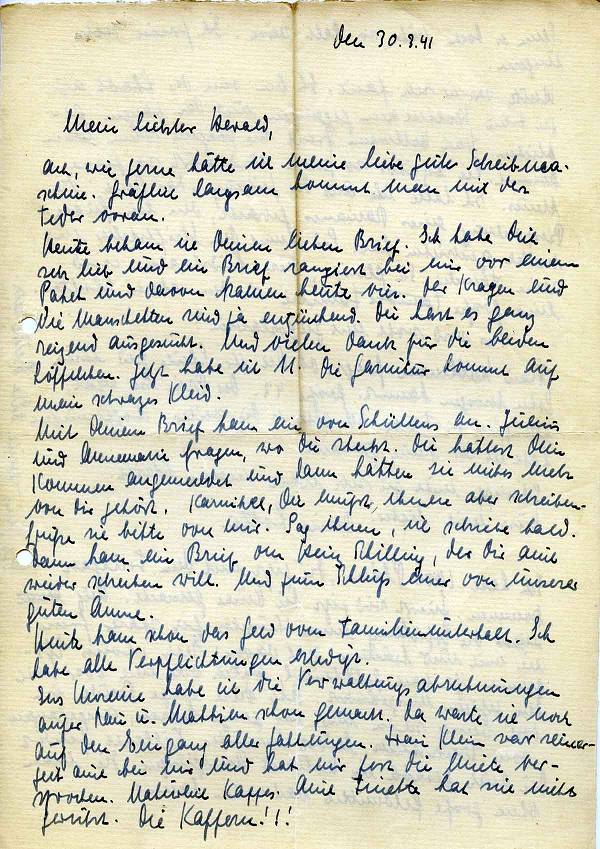 Den 30.8.41
Mein liebster Herald,
ach, wie gerne hätte ich meine liebe gute Schreibma-
schine. Gräßlich langsam kommt man mit der
Feder voran.
Heute bekam ich Deinen lieben Brief. Ich habe Dich
sehr lieb und ein Brief rangiert bei mir vor einem
Paket und davon kamen heute vier. Der Kragen und
die Manschetten sind ja entzückend. Du hast es ganz
reizend ausgesucht. Und vielen Dank für die beiden
Löffelchen. Jetzt habe ich 11. Die Garnitur kommt auf
mein schwarzes Kleid.
Mit Deinem Brief kam ein von Schüllers an. Julius
und Annemarie fragen, wo Du steckst. Du hättest Dein
Kommen angemeldet und dann hätten sie nichts mehr
von Dir gehört. Karnikel, Du mußt ihnen aber schreiben.
Grüße sie bitte von mir. Sag ihnen, ich schriebe bald.
Dann kam ein Brief von Schilling, der Dir auch
wieder schreiben will. Und zum Schluß einer von unserer
guten Änne.
Heute kam schon das Geld vom Familienunterhalt. Ich
habe alle Verpflichtungen erledigt.
habe ich die Verwaltungsabrechnungen
außer u. schon gemacht. Da warte ich noch
auf den Eingang aller Zahlungen. Frau Klein war seiner-
zeit auch bei mir und hat mir fest die Miete ver-
sprochen. Auch hat sie nichts
gewußt. Die Kaffern!!!